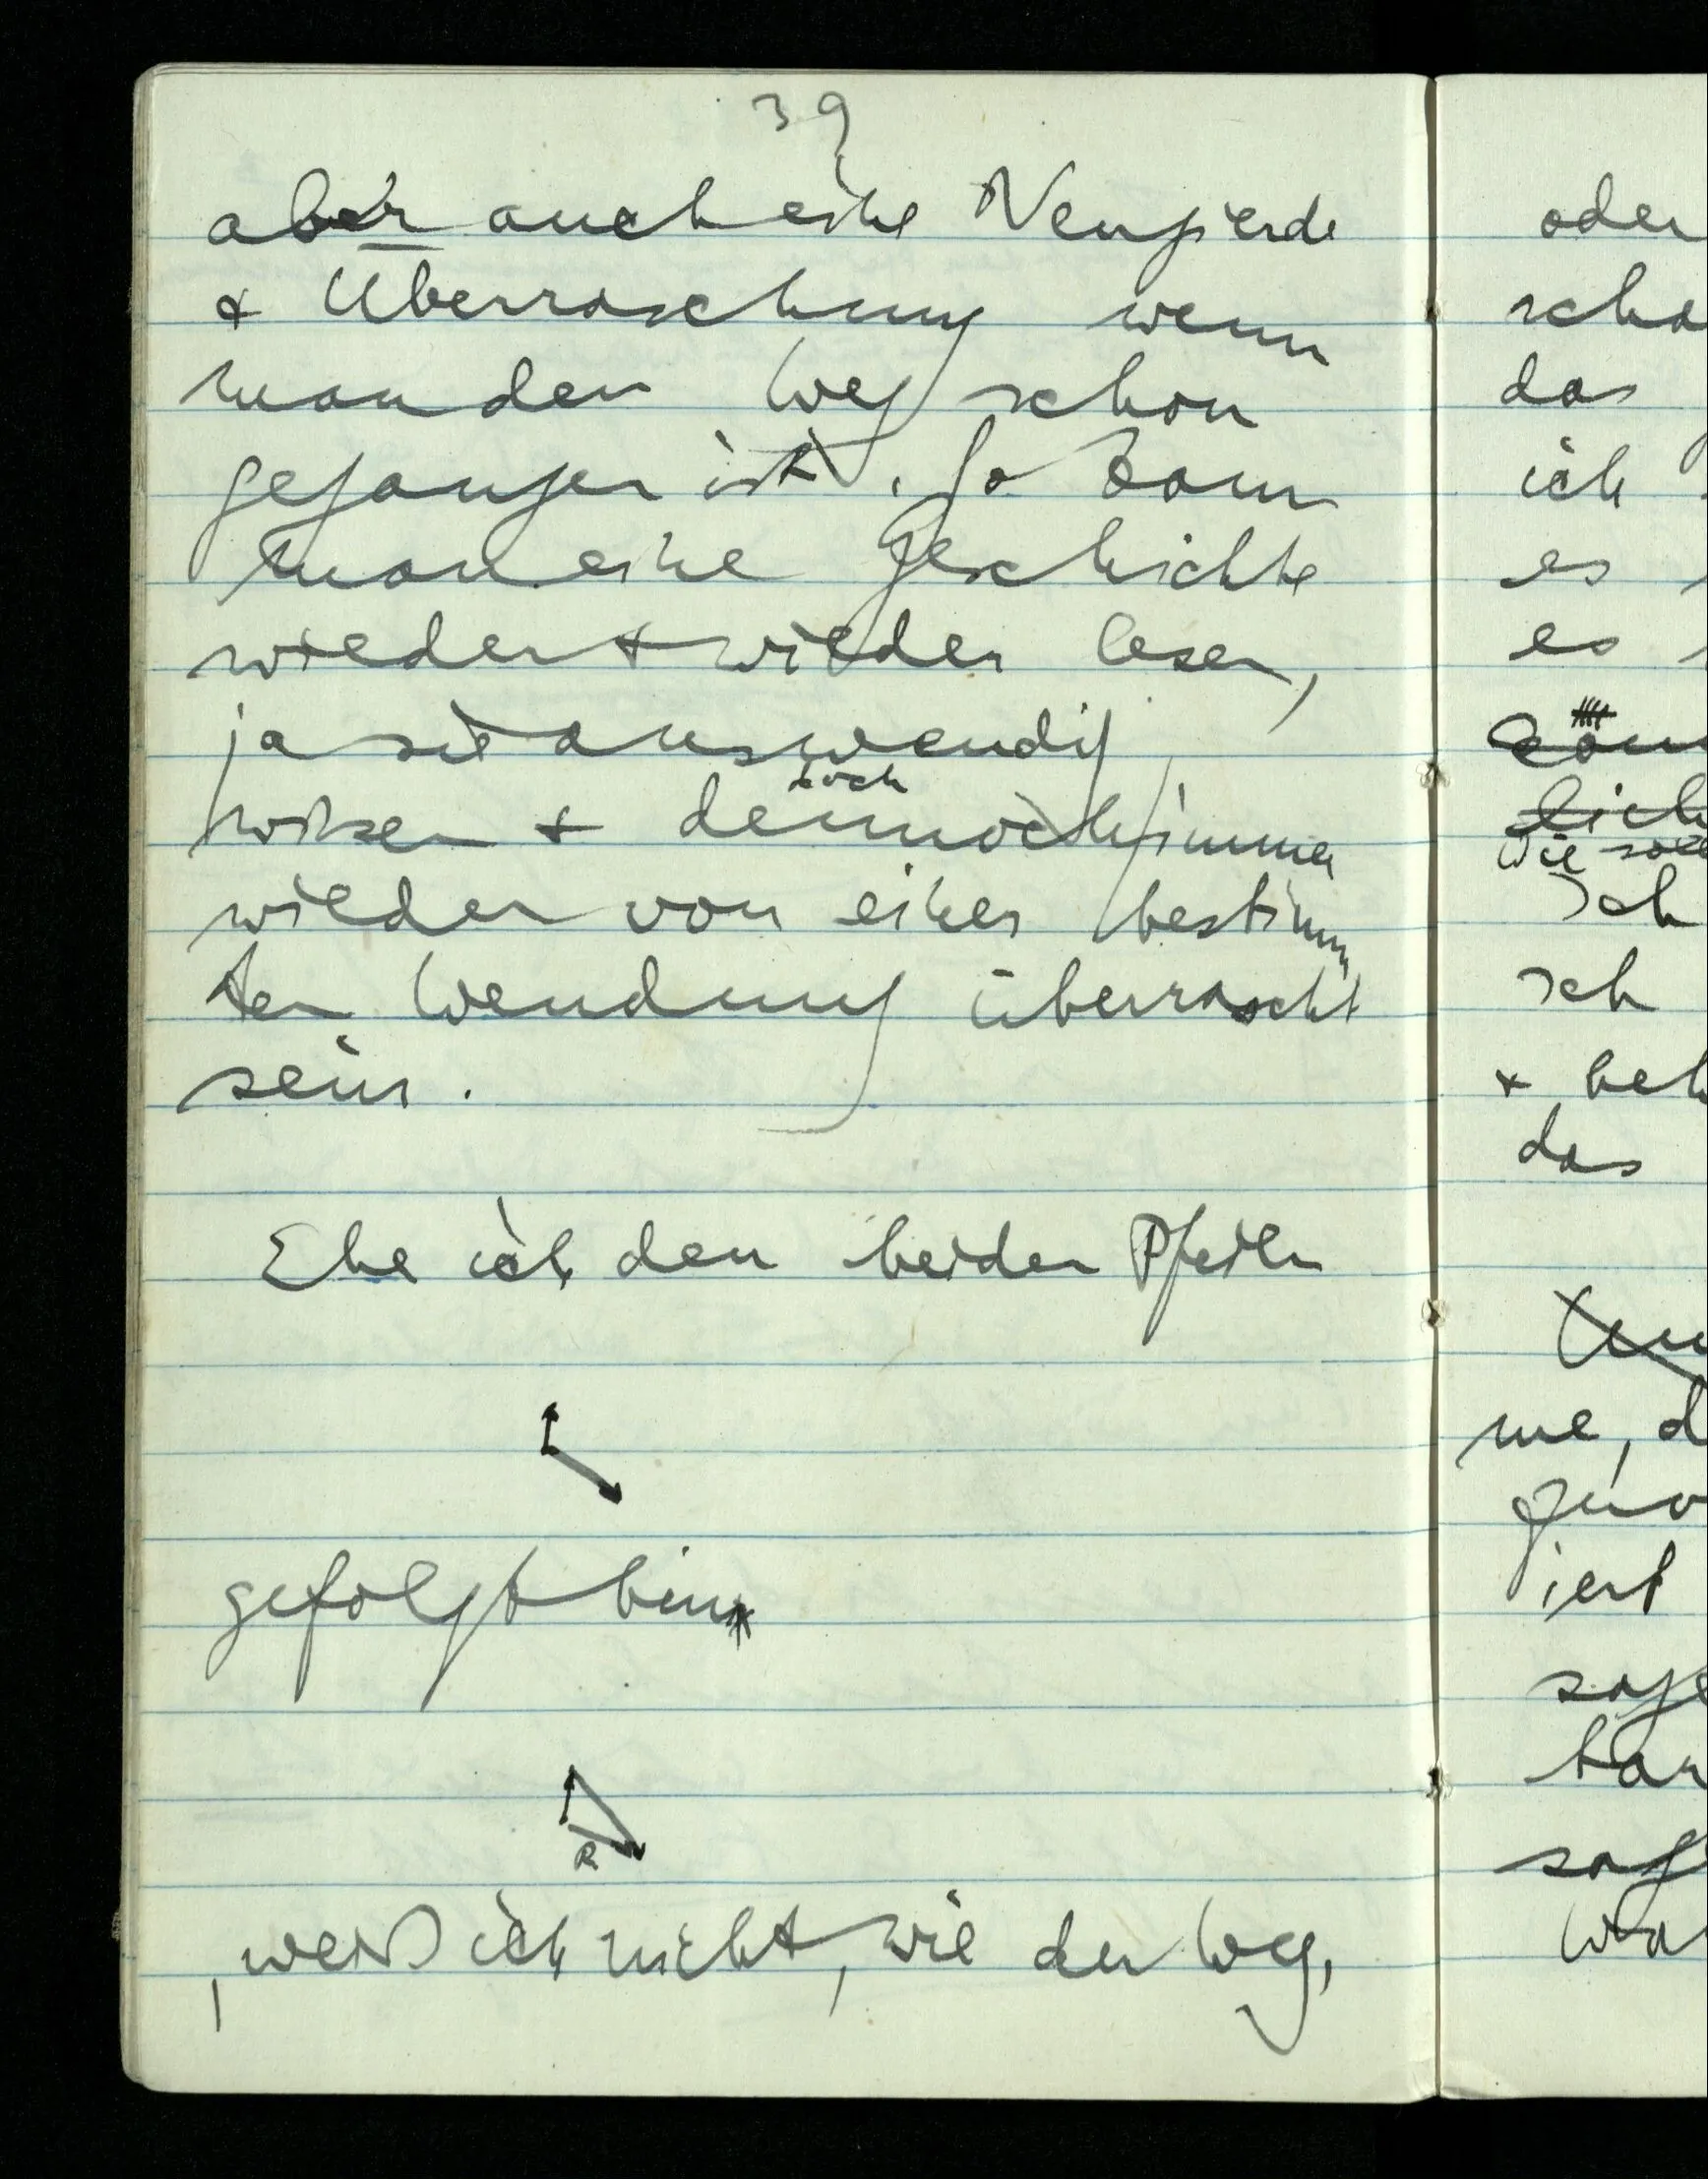 39
aber auch eine Neugierde
& Überraschung wenn
man den Weg schon
gegangen ist. So kann
man eine Geschichte
wieder & wieder lesen,
ja sie auswendig
doch
wissen & dennoch immer
wieder von einer bestimm
ten Wendung überrascht
sein.
Ehe ich den beiden Pfeilen
gefolgt bin
R
, weiß ich nicht, wie der Weg,
oder
das
ich
es
es
Wie
Ich
Ich
&
das
me, d
iert